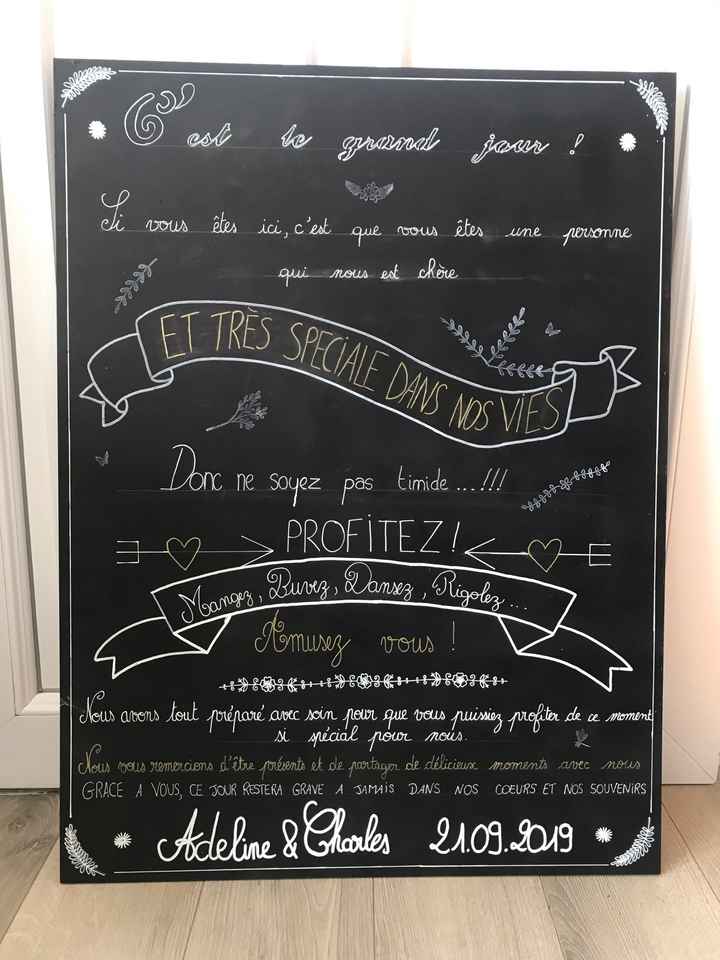 C'est le grand jour !
Si vous êtes ici, c'est que vous êtes une personne
qui nous est chère
ET TRÈS SPECIALE DANS NOS VIES
Donc ne soyez pas timide...!!!
PROFITEZ!
Mangez, Buvez, Dansez, Rigolez...
Amusez vous !
Nous avons tout préparé avec soin pour que vous puissiez profiter de ce moment
si spécial pour nous.
Nous vous remercions d'être présents et de partager de délicieux moments avec nous
GRACE A VOUS, CE JOUR RESTERA GRAVE A JAMAIS DANS NOS COEURS ET NOS SOUVENIRS
Adeline & Charles 21.09.2019